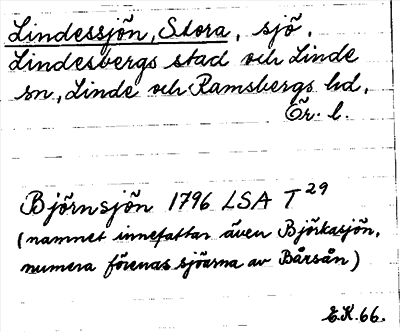 Lindessjön, Stora, sjö,
Lindesbergs stad och Linde
sn, Linde och Ramsbergs hd,
Ör. l.
Björnsjön 1796 LSA T 29
(namnet innefattar även Björkasjön,
numera förenas sjöarna av Bårsån)
E.K. 66.